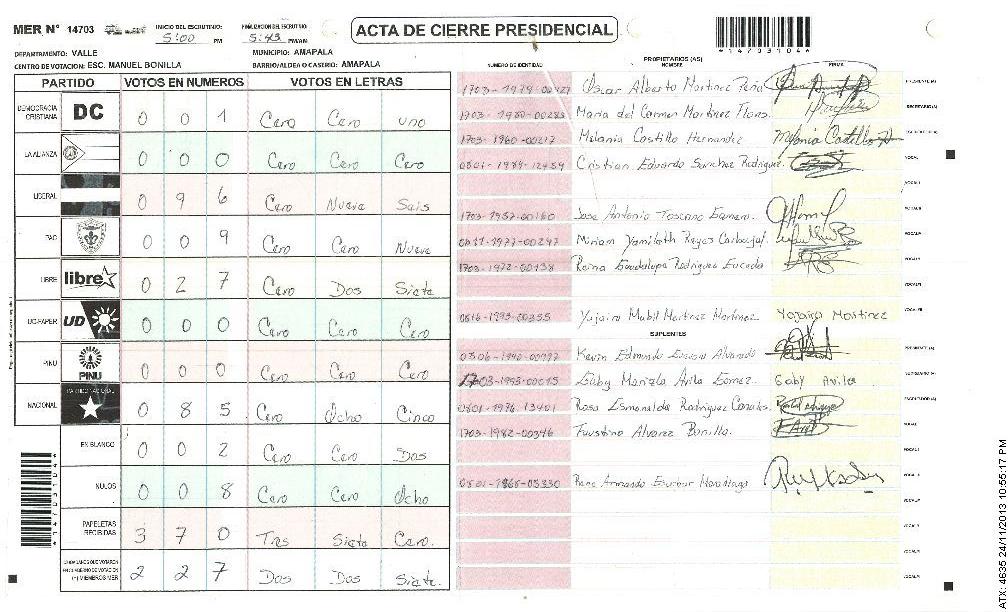 MER N° 14703 INICIO DEL ESCRUTINIO: 5:00 PM FINALIZACION DEL ESCRUTINIO: 5:43 PM/AM
ACTA DE CIERRE PRESIDENCIAL
*14703104*
DEPARTAMENTO: VALLE MUNICIPIO: AMAPALA
CENTRO DE VOTACION: ESC. MANUEL BONILLA BARRIO/ALDEA O CASERIO: AMAPALA
PARTIDO VOTOS EN NUMEROS VOTOS EN LETRAS
DEMOCRACIA CRISTIANA DC 0 0 1 Cero Cero uno
LA ALIANZA 0 0 0 Cero Cero Cero
LIBERAL 0 9 6 Cero Nueve Seis
PAC 0 0 9 Cero Cero Nueve
LIBRE libre 0 2 7 Cero Dos Siete
UD-FAPER UD 0 0 0 Cero Cero Cero
PINU PINU 0 0 0 Cero Cero Cero
NACIONAL PARTIDO NACIONAL 0 8 5 Cero Ocho Cinco
EN BLANCO 0 0 2 Cero Cero Dos
NULOS 0 0 8 Cero Cero Ocho
PAPELETAS RECIBIDAS 3 7 0 Tres Siete Cero.
CIUDADANOS QUE VOTARON EN CUADERNO DE VOTACION (+) MIEMBROS MER 2 2 7 Dos Dos Siete.
NUMERO DE IDENTIDAD PROPIETARIOS (AS) NOMBRE FIRMA
Oscar Alberto Martinez Peña PRESIDENTE (A)
Maria del Carmen Martinez Flores. SECRETARIO (A)
1703-1960-00217 Melania Castillo Hernandez Melania Castillo H
0801-1989-12459 Cristian Eduardo Sanchez Rodriguez. VOCAL
1703-1957-00160 Jose Antonio Toscano
Miriam Yamileth Reyes Carbajal.
1703-1972-00138 Reina Guadalupe Rodriguez
0816-1993-00355 Yujaira Mabil Martinez Martinez Martinez
SUPLENTES
Kevin Edmundo Alvarado PRESIDENTE (A)
Gaby Mariela Avila Gomez. Gaby Avila SECRETARIO (A)
0801-1976-13401 Rosa Esmeralda Rodriguez Canales. ESCRUTADOR (A)
1703-1982-00346 Faustino Alvarez Bonilla. VOCAL
0801-1968-05330 Rene Armando
*14703104*
ATX: 4635 24/11/2013 10:55:17 PM